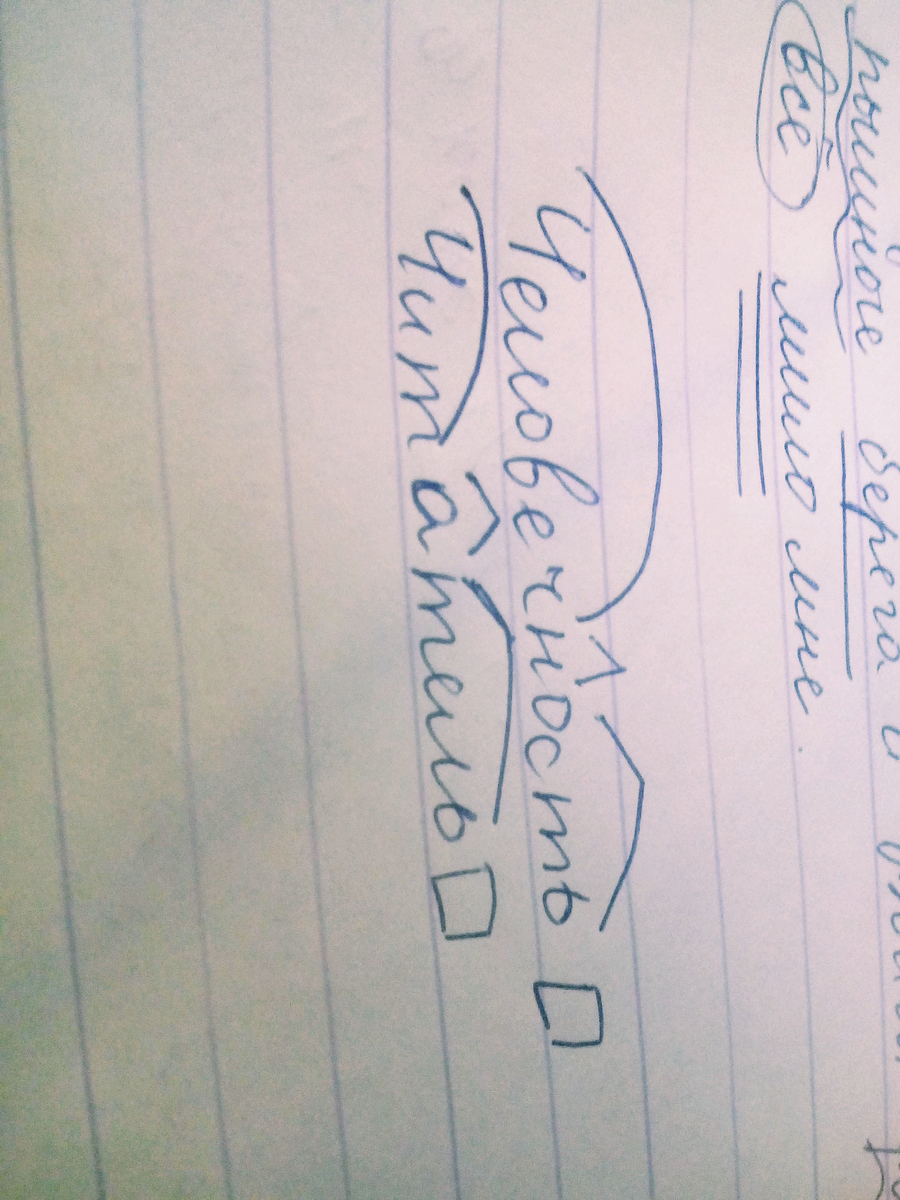 берега и
всё мило мне.
Человечность
Читатель